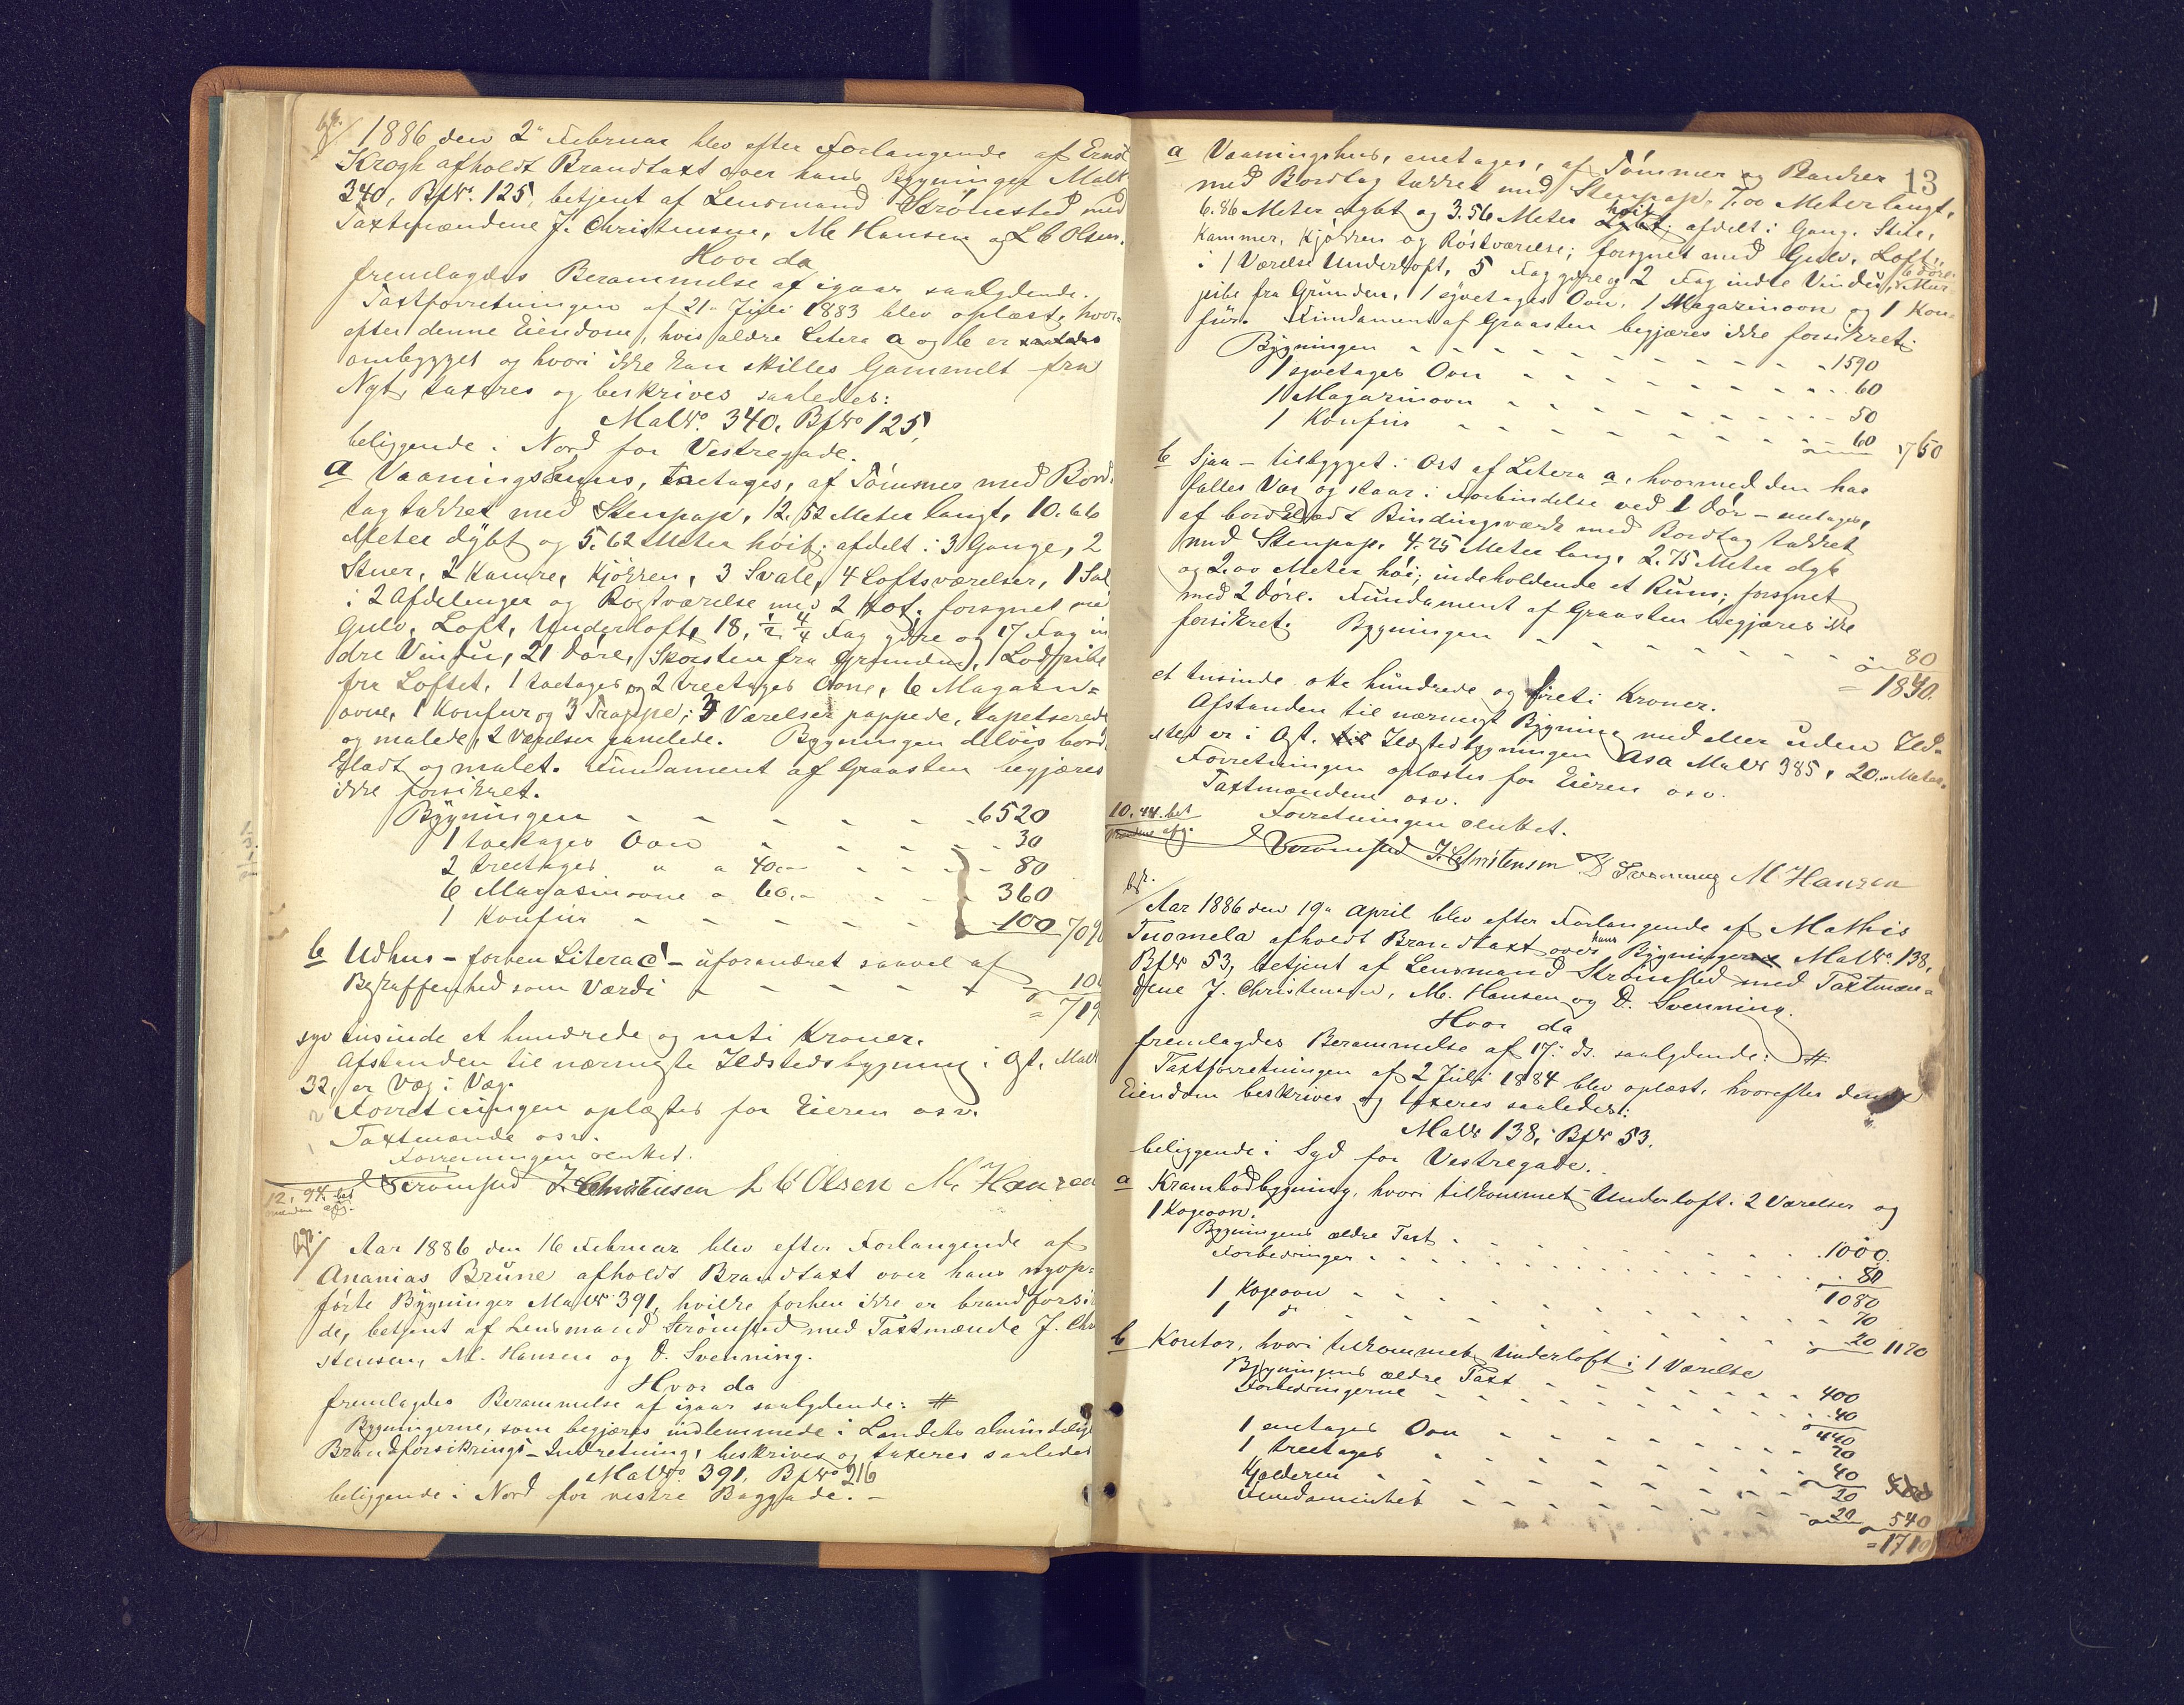 bft.
1886 den 2" Februar blev efter Forlangende af Ernst
Krogh afholdt Brandtaxt over hans Bygninger MatN
340, BfNo. 125, betjent af Lensmand Strömsted med
Taxtmændene J. Christensen, M. Hansen og L C Olsen.
Hvor da
fremlagdes Berammelse af igaar saalydende.
Taxtforretningen af 21" Juli 1883 blev oplæst, hvor-
efter denne Eiendom, hvis ældre Litera a og b er
ombygget og hvori ikke kan skilles Gammelt fra
Nyt, taxeres og beskrives saaledes:
MatNo. 340, BfNo 125,
beliggende i Nord for Vestregade.
a Vaaningshuus, toetages, af Tömmer med Bord-
tag tækket med Stenpap, 12.52 Meter langt, 10.66
Meter dybt og 5.62 Meter höit; afdelt i 3 Gange, 2
Stuer, 2 Kamre, Kjökken, 3 Svale, 4 Loftsværelser, 1 Sal
i 2 Afdelinger og Rogtværelse med 2 Kot; forsynet me
Gulv, Loft, Underloft, 18, 1/2 4/4 Fag ydre og 17 Fag in
dre Vindu, 21 Döre, Skorsten fra Grunden, 1 Lodpibe
fra Loftet, 1 toetages og 2 treetages Ovne, 6 Magasin-
ovne, 1 Konfur og 3 Trappe; 3 Værelser pappede, tapetserede
og malede, 2 Værelser panelede. Bygningen delvis bord-
klædt og malet. Fundament af Graasten begjæres
ikke forsikret.
Bygningen - - - - - 6520
1 toetages Ovn - - - - 30
2 treetages " a 40.- - - - 80
6 Magasinovne a 60.- - - - 360
1 Konfur - - - - - 100 709
b Udhus - forhen Litera c - uforandret saavel af
Beskaffenhed som Værdi - - - - 10
= 719
syv tusinde et hundrede og niti Kroner.
Afstanden til nærmeste Ildstedsbygning i Øst, Mat
32, er Væg i Væg.
Forretningen oplæstes for Eieren osv.
Taxtmænde osv.
Forretningen sluttet.
12.94. bet
Strömsted J. Christensen L C Olsen M. Hansen
bft.
Aar 1886 den 16 Februar blev efter Forlangende af
Ananias Brune afholdt Brandtaxt over hans nyop-
förte Bygninger MatN 391, hvilke forhen ikke er brandforsi
de, betjent af Lensmand Strömsted med Taxtmænde J. Chr
stensen, M. Hansen og D. Svenning.
Hvor da
fremlagdes Berammelse af igaar saalydende: #
Bygningerne, som begjæres indlemmede i Landets almindelige
Brandforsikrings-Indretning, beskrives og taxeres saaledes
MatNo. 391, BfNo 216
beliggende i Nord for vestre Baggade. -
13
a Vaaningshus, enetages, af Tömmer og Planker
med Bordtag tækket med Stenpap, 7.00 Meter langt,
6.86 Meter dybt og 3.56 Meter höit; afdelt i Gang, Stue,
Kammer, Kjökken og Röstværelse; forsynet med Gulv, Loft,
i 1 Værelse Underloft, 5 Fag ydre og 2 Fag indre Vindu, 6 Döre, Mur-
pibe fra Grunden, 1 syvetages Ovn, 1 Magazinovn og 1 Kon-
für. Fundament af Graasten begjæres ikke forsikret.
Bygningen - - - - - 1590
1 syvetages Ovn - - - - - 60
1 Magazinovn - - - - - 50
1 Konfür - - - - - 60 1760
b Sjaa - tilbygget i Öst af Litera a, hvormed den har
fælles Væg og staar i Forbindelse ved 1 Dör - enetages,
af bordklædt Bindingsværk med Bordtag tækket
med Stenpap, 4.75 Meter lang, 2.75 Meter dyb
og 2.00 Meter höi; indeholdende et Rum; forsynet
med 2 Döre. Fundament af Graasten begjæres ikke
forsikret. Bygningen - - - - - 80
= 1840.
et tusinde otte hundrede og fireti Kroner.
Afstanden til nærmest Bygning med eller uden Ild-
sted er i Øst, Ildstedbygningen Asa MatN 385, 20. Meter.
Forretningen oplæstes for Eieren osv.
Taxtmændene osv.
Forretningen sluttet.
10.44. bet
Strömsted J. Christensen D Svenning M Hansen
bft.
Aar 1886 den 19" April blev efter Forlangende af Mathis
Tuomela afholdt Brandtaxt over hans Bygninger MatNo. 138,
BfN 53, betjent af Lensmand Strömsted med Taxtmæn-
dene J. Christensen, M. Hansen og D. Svenning.
Hvor da
fremlagdes Berammelse af 17. ds. saalydende: #
Taxtforretningen af 2 Juli 1884 blev oplæst, hvorefter denne
Eiendom beskrives og taxeres saaledes:
MatN 138, BfN 53.
beliggende i Syd for Vestregade.
a Krambodbygning, hvori tilkommet Underloft i 2 Værelser og
1 Kogeovn.
Bygningens ældre Taxt - - - - 1000.
Forbedringer - - - - - 80
1080
1 Kogeovn - - - - - 70
1 do - - - - - 20 1170
b Kontor, hvori tilkommet Underloft i 1 Værelse
Bygningens ældre Taxt - - - - 400
Forbedringerne - - - - - 40
440
1 enetages Ovn - - - - - 20
1 treetages " - - - - - 40
Kjælderen - - - - - 20
Fundamentet - - - - - 20 540
= 1710